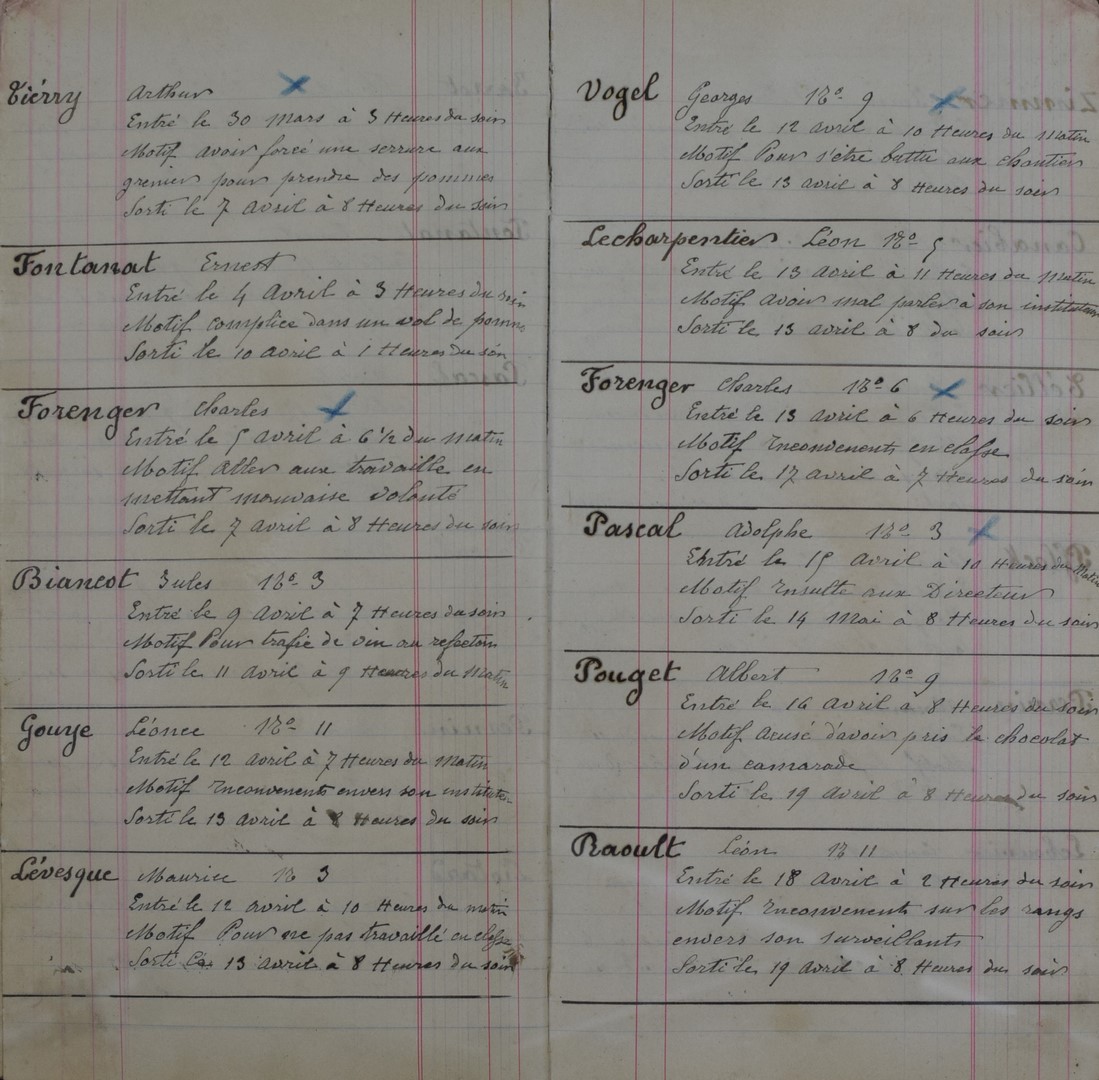 Tiérry Arthur
Entré le 30 Mars à 3 Heures du soir
Motif avoir forcé une serrure aux
grenier pour prendre des pommes
Sorti le 7 Avril à 8 Heures du soir
Fontanat Ernest
Entré le 4 Avril à 3 Heures du soir
Motif complice dans un vol de pomme
Sorti le 10 avril à 1 Heures du soir
Forenger Charles
Entré le 5 avril à 6 1/2 du matin
Motif Aller aux travaille en
mettant mauvaise volonté
Sorti le 7 avril à 8 Heures du soir
Biancot Jules No 3
Entré le 9 Avril à 7 Heures du soir
Motif Pour trafic de vin au refectoir
Sorti le 11 avril à 9 Heures du Matin
Gouye Léonce No 11
Entré le 12 avril à 7 Heures du Matin
Motif Inconvenents envers son instituteur
Sorti le 13 avril à 8 Heures du soir
Lévesque Maurice N 3
Entré le 12 avril à 10 Heures du matin
Motif Pour ne pas travaillé en classe
Sorti Le 13 avril à 8 Heures du soir
Vogel Georges No 9
Entré le 12 avril à 10 Heures du Matin
Motif Pour s'être battu aux chantier
Sorti le 13 avril à 8 Heures du soir
Lecharpentier Léon No 5
Entré le 13 Avril à 11 Heures du Matin
Motif avoir mal parler à son instituteur
Sorti le 13 avril à 8 du soir
Forenger Charles No 6
Entré le 13 avril à 6 Heures du soir
Motif Inconvenents en classe
Sorti le 17 avril à 7 Heures du soir
Pascal Adolphe No 3
Entré le 15 Avril à 10 Heures du Matin
Motif Insulte aux Directeur
Sorti le 14 Mai à 8 Heures du soir
Pouget Albert No 9
Entré le 16 Avril à 8 Heures du soir
Motif acusé d'avoir pris le chocolat
d'un camarade
Sorti le 19 avril à 8 Heures du soir
Raoult Léon N 11
Entré le 18 Avril à 2 Heures du soir
Motif Inconvenents sur les rangs
envers son surveillants
Sorti le 19 avril à 8 Heures du soir